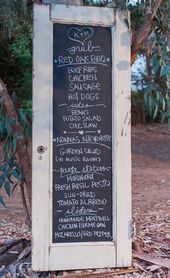 K+M
grub...
RED OAK BBQ
BEEF RIBS
CHICKEN
SAUSAGE
HOT DOGS
sides
BEANS
POTATO SALAD
COLE SLAW
NONNA'S KITCHENETTE
GARDEN SALAD
(in MUSIC ROOM)
pasta station
MARINARA
FRESH BASIL PESTO
SUN-DRIED
TOMATO ALFREDO
sliders
HANDMADE MEATBALL
CHICKEN PARMESAN
MOZZARELLA/RED PEPPER